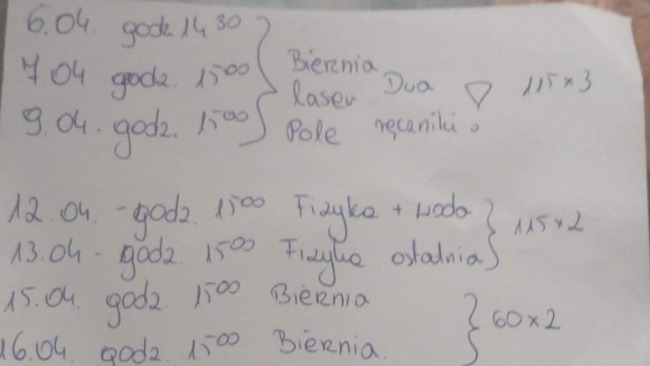 6.04. godz 14 30
7.04 godz. 15 00
9.04. godz. 15 00
Bieżnia
laser Dwa
Pole ręczniki
115 x 3
12.04. - godz. 15 00 Fizyka + woda
13.04 - godz. 15 00 Fizyka ostatnia
115 x 2
15.04. godz. 15 00 Bieżnia
16.04. godz. 15 00 Bieżnia.
60 x 2